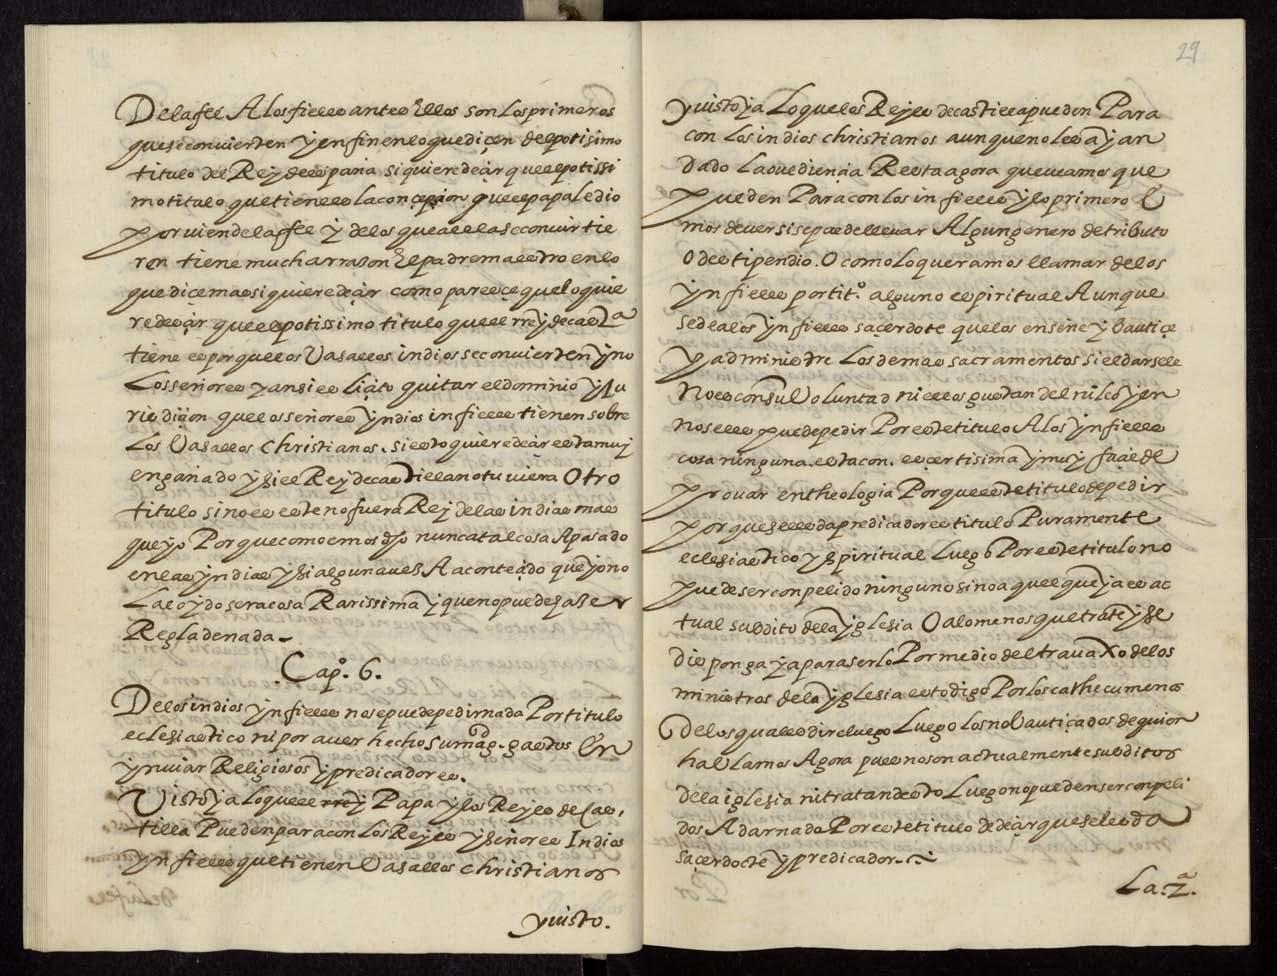 De la fee A los fieles antes Ellos son los primeros
que se convierten y en fin en lo que diçen del potisimo
titulo del Rey de españa si quiere deçir que el potissi
mo titulo que tiene es la conçepçion que el papa le dio
por vien de la fee y de los que a ella se convirtie
ron tiene mucha rrazon El padre maestro en lo
que diçe mas si quiere deçir como pareçe que lo quie
re deçir que el potissimo titulo que el rrey de casta
tiene es porque los Vasallos indios se convierten y no
Los señores y ansi es liçito quitar el dominio y Ju
risdiçion que los señores Yndios infieles tienen sobre
Los Vasallos Christianos. si esto quiere deçir esta muy
engañado y si el Rey de castilla no tuviera Otro
titulo sino es este no fuera Rey de las indias mas
que yo Porque como emos dho nunca tal cosa A pasado
en las yndias y si alguna vez A aconteçido que yo no
La e oydo sera cosa Rarissima y que no puede hazer
Regla de nada
Capº. 6.
De los indios ynfieles no se puede pedir nada Por titulo
eclesiastico ni por aver hecho su magd. gastos En
ynviar Religiosos y predicadores.
Visto ya lo que el rrey Papa y los Reyes de Cas,
tilla Pueden para con Los Reyes y señores Indios
ynfieles que tienen Vasallos christianos
y visto.
29
y visto ya Lo que los Reyes de castilla pueden Para
con Los indios christianos aunque no les ayan
Dado La ouediençia Resta agora que veamos que
pueden Para con Los infieles y lo primero E
mos de ver si se puede llevar Algun genero de tributo
O de estipendio. O como lo queramos llamar de los
ynfieles por titº. alguno espiritual Aunque
se de a los ynfieles saçerdote que los enseñe y bautiçe
y administre Los demas sacramentos si el darsele
No es con su Voluntad ni ellos gustan del y en
Nos el puede pedir Por este titulo A los ynfieles
cosa ninguna. esta con. es certisima y muy façil de
provar en theologia Porque este titulo de pedir
porque se les da predicador es titulo Puramente
eclesiastico y spiritual Luego Por este titulo no
puede ser conpelido ninguno sino aquel que ya es ac
tual subdito de la yglesia O a lo menos que trate y se
disponga ya para serlo Por medio del travaxo de los
ministros de la yglesia esto digo Por los cathecumenos
De los quales dire luego Luego los no bautiçados de quien
hablamos Agora pues no son actualmente subditos
de la iglesia ni tratan de esto Luego no pueden ser conpeli
dos A dar nada Por este titulo de deçir que se les da
saçerdocte y predicador.
La. 2ª.